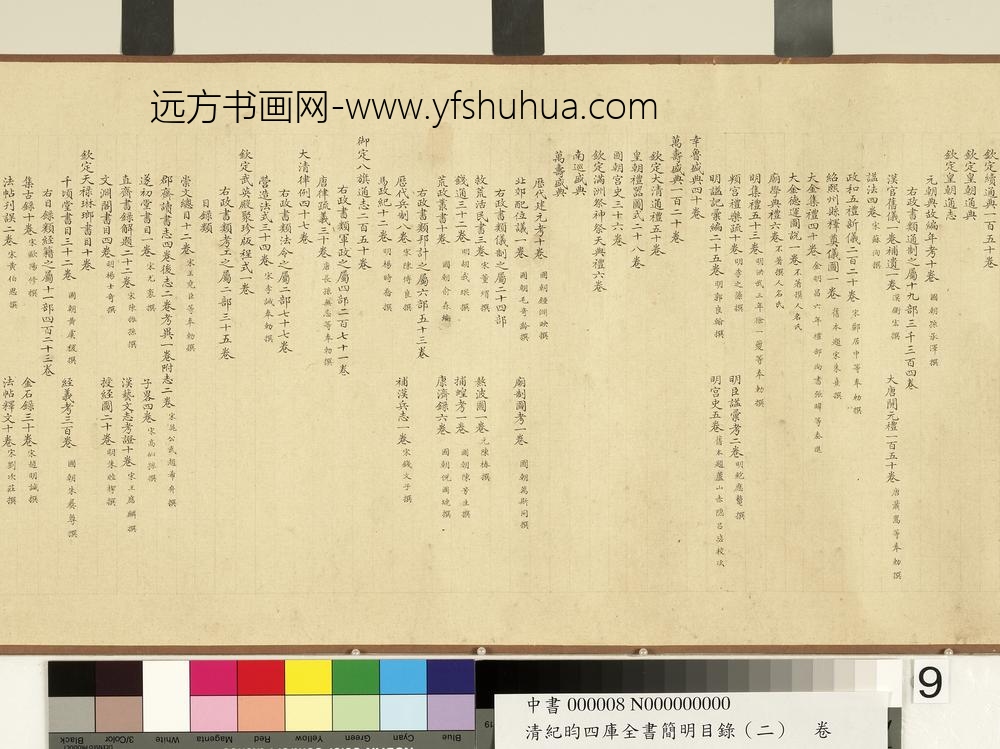 远方书画网-www.yfshuhua.com
欽定續通典一百五十
欽定皇朝通典
欽定皇朝通志
元朝典故編年考十卷 國朝孫承澤撰
右政書類通制之屬十九部三千三百四卷
漢官舊儀一卷補遺一卷 漢衛宏撰 大唐開元禮一百五十卷 唐蕭嵩等奉勅撰
謚法四卷 宋蘇洵撰
政和五禮新儀二百二十卷 宋鄭居中等奉勅撰
紹熙州縣釋奠儀圖一卷 舊本題宋朱熹撰
大金集禮四十卷
大金德運圖說一卷 不著撰人名氏
廟學典禮六卷 不著撰人名氏
明集禮五十三卷 明洪武三年徐一夔等奉勅撰
頖宮禮樂疏十卷 明李之藻撰 明臣謚彙考二卷 明鮑應鰲撰
明謚記彙編二十五卷 明郭良翰撰 明宮史五卷 舊本題蘆山赤隱呂毖校次
幸魯盛典四十卷
萬壽盛典一百二十卷
欽定大清通禮五十卷
皇朝禮器圖式二十八卷
國朝宮史三十六卷
欽定滿洲祭神祭天典禮六卷
南巡盛典
萬壽盛典
歷代建元考十卷 國朝鍾淵映撰
北郊配位議一卷 國朝毛奇齡撰 廟制圖考一卷 國朝萬斯同撰
右政書類儀制之屬二十四部
救荒活民書三卷 宋董煟撰 熬波圖一卷 元陳椿撰
錢通三十二卷 明胡我琨撰 捕蝗考一卷 國朝陳芳生撰
荒政叢書十卷 國朝俞森編 康濟錄六卷 國朝倪國璉撰
右政書類邦計之屬六部五十三卷
歷代兵制八卷 宋陳傅良撰 補漢兵志一卷 宋錢文子撰
馬政紀十二卷 明楊時喬撰
御定八旗通志二百五十卷
右政書類軍政之屬四部二百七十一卷
唐律疏義三十卷 唐長孫無忌等奉勅撰
大清律例四十七卷
右政書類法令之屬二部七十七卷
營造法式三十四卷 宋李誡奉勅撰
欽定武英殿聚珍版程式一卷
右政書類考工之屬二部三十五卷
目錄類
崇文總目十二卷 宋王堯臣等奉勅撰
郡齋讀書志四卷後志二卷考異一卷附志二卷 宋晁公武趙希弁撰
遂初堂書目一卷 宋尤袤撰 子略四卷 宋高似孫撰
直齋書錄解題二十二卷 宋陳振孫撰 漢藝文志考證十卷 宋王應麟撰
文淵閣書目四卷 明楊士奇撰 授經圖二十卷 明朱睦㮮撰
欽定天祿琳瑯書目十卷
千頃堂書目三十二卷 國朝黃虞稷撰 經義考三百卷 國朝朱彝尊撰
右目錄類經籍之屬十一部四百二十三卷
集古錄十卷 宋歐陽修撰 金石錄三十卷 宋趙明誠撰
法帖刊誤二卷 宋黃伯思撰 法帖釋文十卷 宋劉次莊撰
9
中書 000008 N000000000
清紀昀四庫全書簡明目錄(二) 卷
Black 3/Color White Magenta Red Yellow Green Cyan Blue